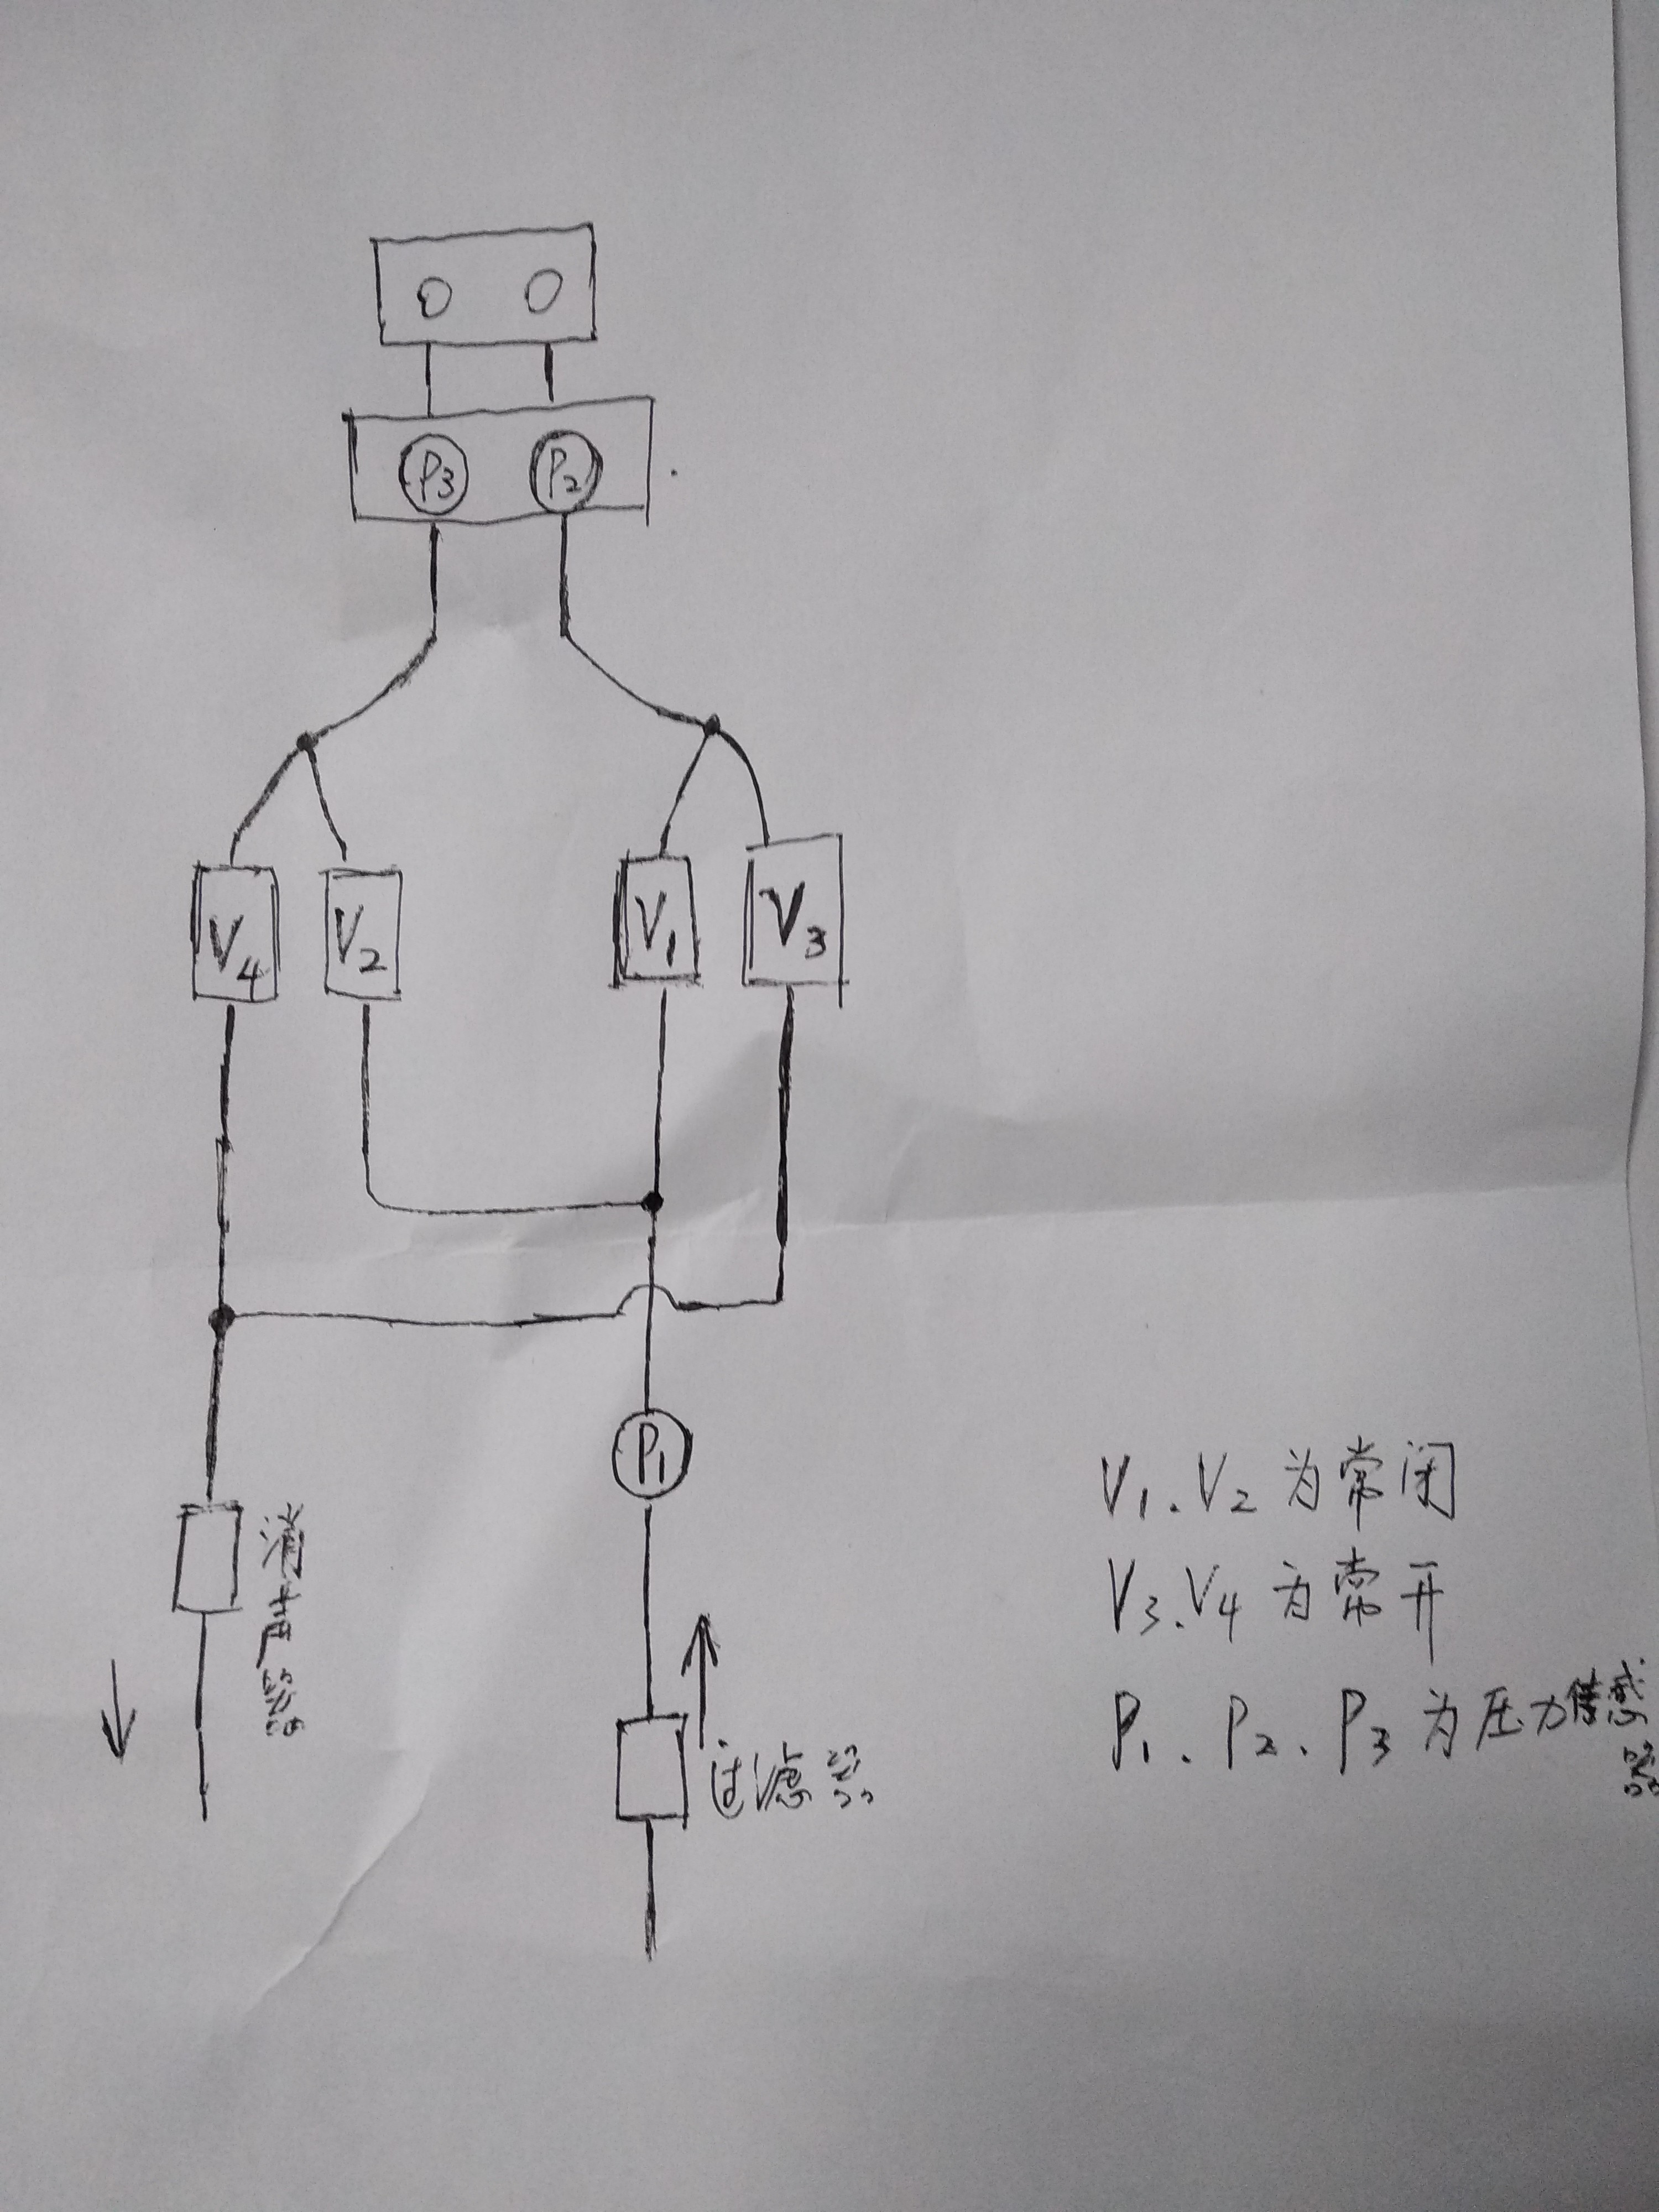 P3 P2
V4 V2 V1 V3
P1
消声器
过滤器
V1.V2 为常闭
V3.V4 为常开
P1、P2、P3 为压力传感器